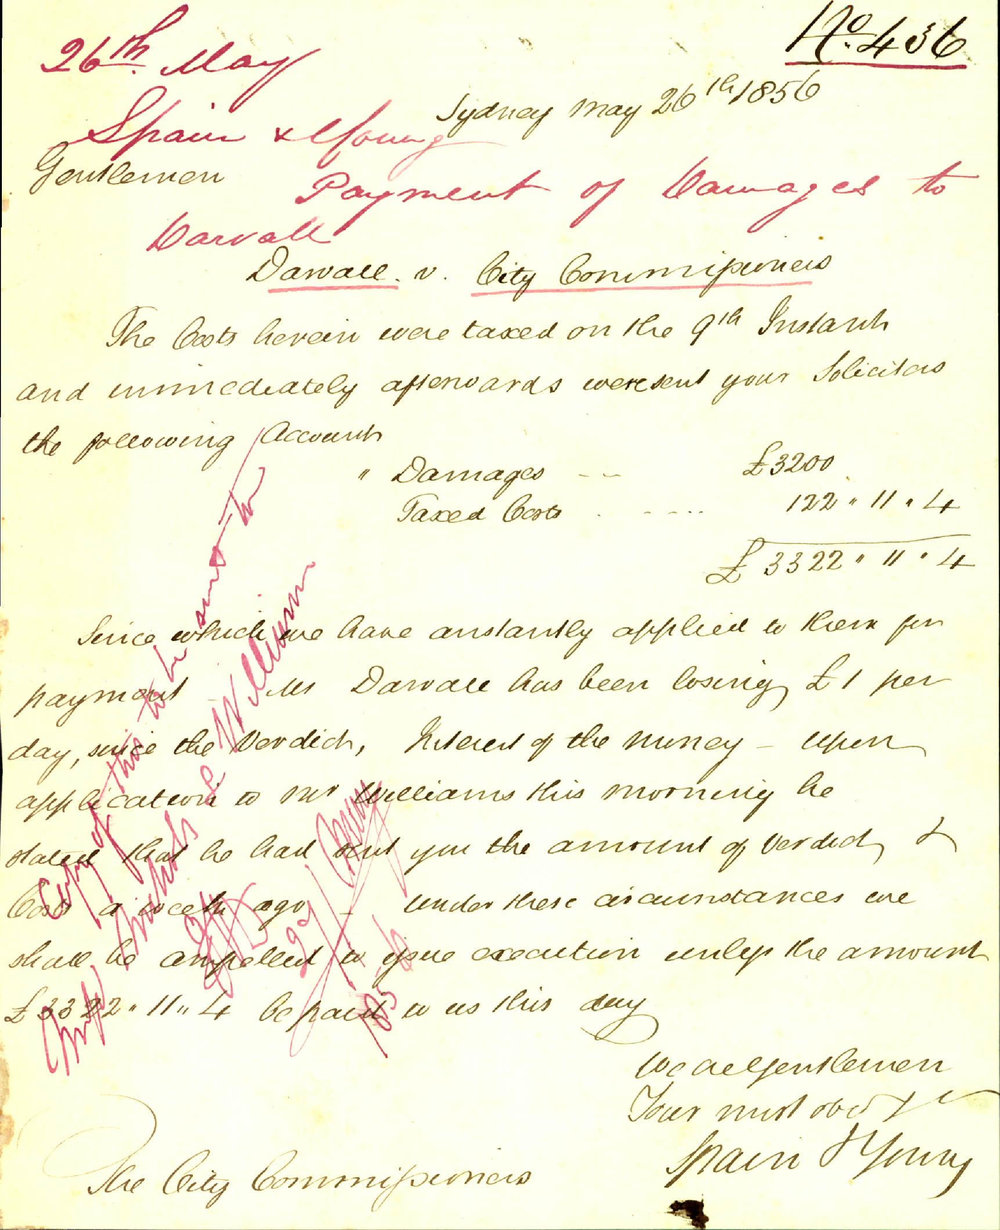 No. 436
26th May
Sydney May 26th 1856
Spain & Young
Gentlemen
Payment of Damages to
Darvall
Darvall v. City Commissioners
The Costs herein were taxed on the 9th Instant
and immediately afterwards were sent your Solicitors
the following Account
" Damages £3200
Taxed Costs 122 " 11 " 4
£3322 " 11 " 4
Since which we have constantly applied to them for
payment Mr Darvall has been losing £1 per
day, since the Verdict, Interest of the money - Upon
application to Mr Williams this morning he
stated that he had sent you the amount of Verdict &
Costs a week ago - Under these circumstances we
shall be compelled to issue execution unless the amount
£3322 " 11 " 4 be paid to us this day
We are Gentlemen
Your most obdt &c
Spain & Young
The City Commissioners
Copy of this to be sent to
Messrs & Williams
27/ May
1856